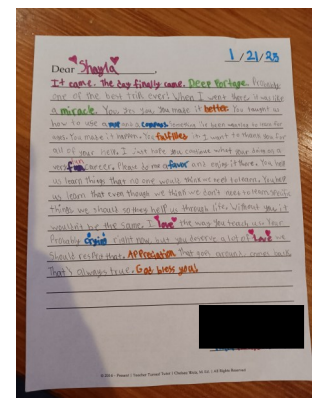 1/21/23
Dear Shayla
It came. The day finally came. Deep Portage. Probably
one of the best trip ever! When I went there it was like
a miracle. You did it. You made it better. You taught us
how to use a map and a compass. I've been wanting to learn for
ages. You made it happen. You fulfilled it. I want to thank you for
all of your help. I just hope you continue what your doing as a
very fun career. Please do me a favor and enjoy it there. You help
us learn things that no one would think we need to learn. You help
us learn that even though we think we don't need to learn
things we should so they help us through life. Without you it
wouldn't be the same. I love the way you teach us. Your
Probably crying right now, but you deserve a lot of love. We
should respect that. Appreciation that goes around, comes back.
That's always true. God bless you!